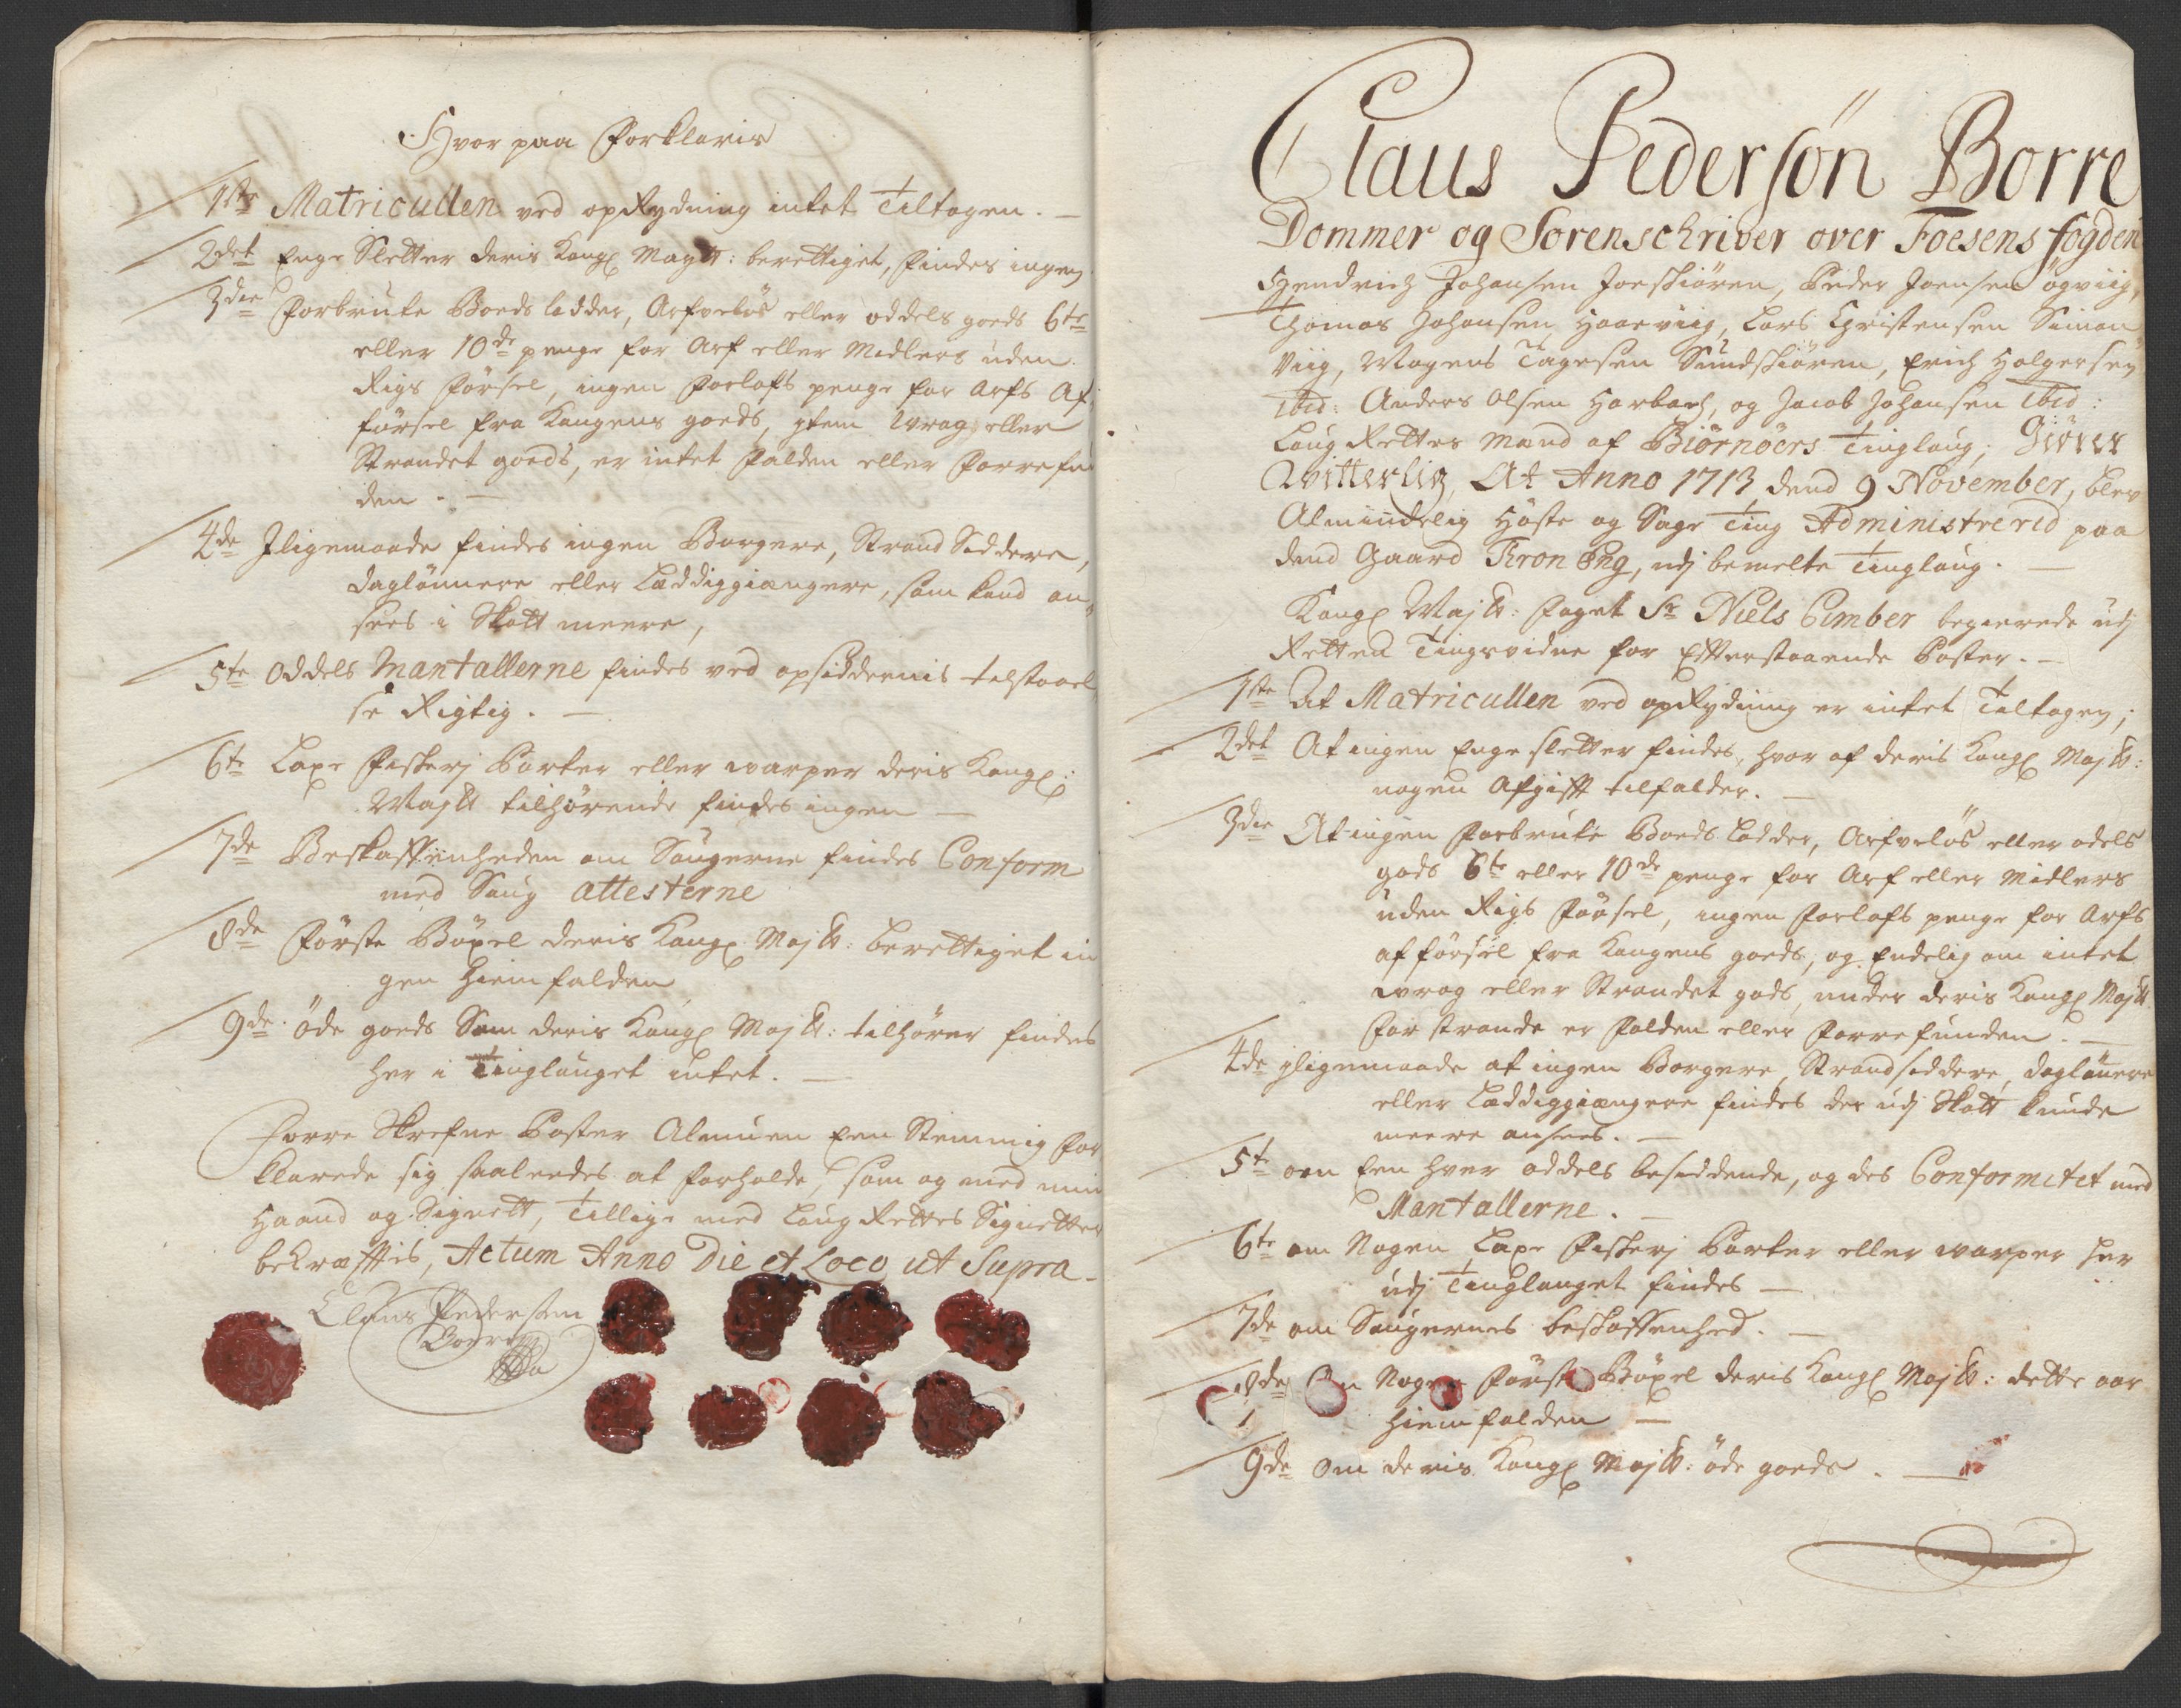 Hvor paa Forklaris
1ste Matricullen ved opRydning intet Tiltagen. —
2det Enge Sletter deris Kongl Maytt: berettiget, findes ingen
3die Forbrutte Boeds ladder, Arfveløs eller oddels goeds 6te
eller 10de penge for Arf eller Midlers uden
Rigs førsel, ingen forlofs penge for Arfs Af
førsel fra Kongens goeds, item Wrag eller
Strandet goeds, er intet falden eller forrefun
den. —
4de Iligemaade findes ingen Borgere, Strand Siddere,
daglønnere eller Læddiggiængere, som kand an
sees i Skatt meere,
5te Oddels Mantallerne findes ved opsiddernis tilstaael
se Rigtig. —
6te Laxe fiskerj Parter eller warper deris Kongl:
Maytt tilhørende findes ingen —
7de Beskaffenheden om Saugerne findes Conform
med Saug Attesterne
8de Første Bøxel deris Kongl Majtt: berettiget in
gen hiemfalden
9de Øde goeds Som deris Kongl Majtt: tilhører findes
her i Tinglauget intet. —
Forre Skrefne Poster Almuen Een Stemmig for
klarede sig saaledes at forholde, som og med min
Haand og Signett, Tillige med Laug Rettes Signetter
bekræfftis, Actum Anno Die et Loco ut Supra.
Claus Pedersøn
Borre
Claus Pedersøn Borre
Dommer og Sorenschriver over Foesens fogden
Hendrich Johansen Joeskiøren, Peder Joensen Øgviig,
Thomas Johansen Haarviig, Lars Christensen Simon
Viig, Mogens Tagesen Sundskiøren, Erich Holgersen
ibid: Anders Olsen Harbach, og Jacob Johansen ibid:
Laug Rettes mænd af Biørnøers Tinglaug; Giører
Witterlig, At Anno 1713 dend 9 November, blev
Almindelig Høste og Sage Ting Administrerid paa
dend Gaard Kron Eng, udj bemelte Tinglaug. —
Kongl Majtt: Foget Sr Niels Cimber begierede udj
Retten Tingsvidne for Efterstaaende Poster. —
1ste At Matricullen ved opRydning er intet Tiltagen;
2det At ingen Enge sletter findes, hvor af deris Kongl Majtt:
nogen Afgifft tilfalder. —
3die At ingen forbrutte Boeds Ladder, Arfveløs eller odels
gods 6te eller 10de penge for Arf eller midlers
uden Rigs førsel, ingen forlofs penge for Arfs
afførsel fra Kongens goeds, og Endelig om intet
wrag eller Strandet gods, under deris Kongl Majtt
for strande er falden eller forrefunden. —
4de iligemaade at ingen Borgere, Strandsiddere, daglønnere
eller Læddiggiængere findes der udj Skatt kunde
meere ansees. —
5te om Een hver oddels besiddende, og des Conformitet med
Mantallerne. —
6te om Nogen Laxe fiskerj Parter eller warper her
udj Tinglauget findes —
7de om Saugernes beskaffenhed. —
8de Om Nogen første Bøxel deris Kongl Majtt: dette aar
hiemfalden —
9de Om deris Kongl Majtt: øde goeds. —